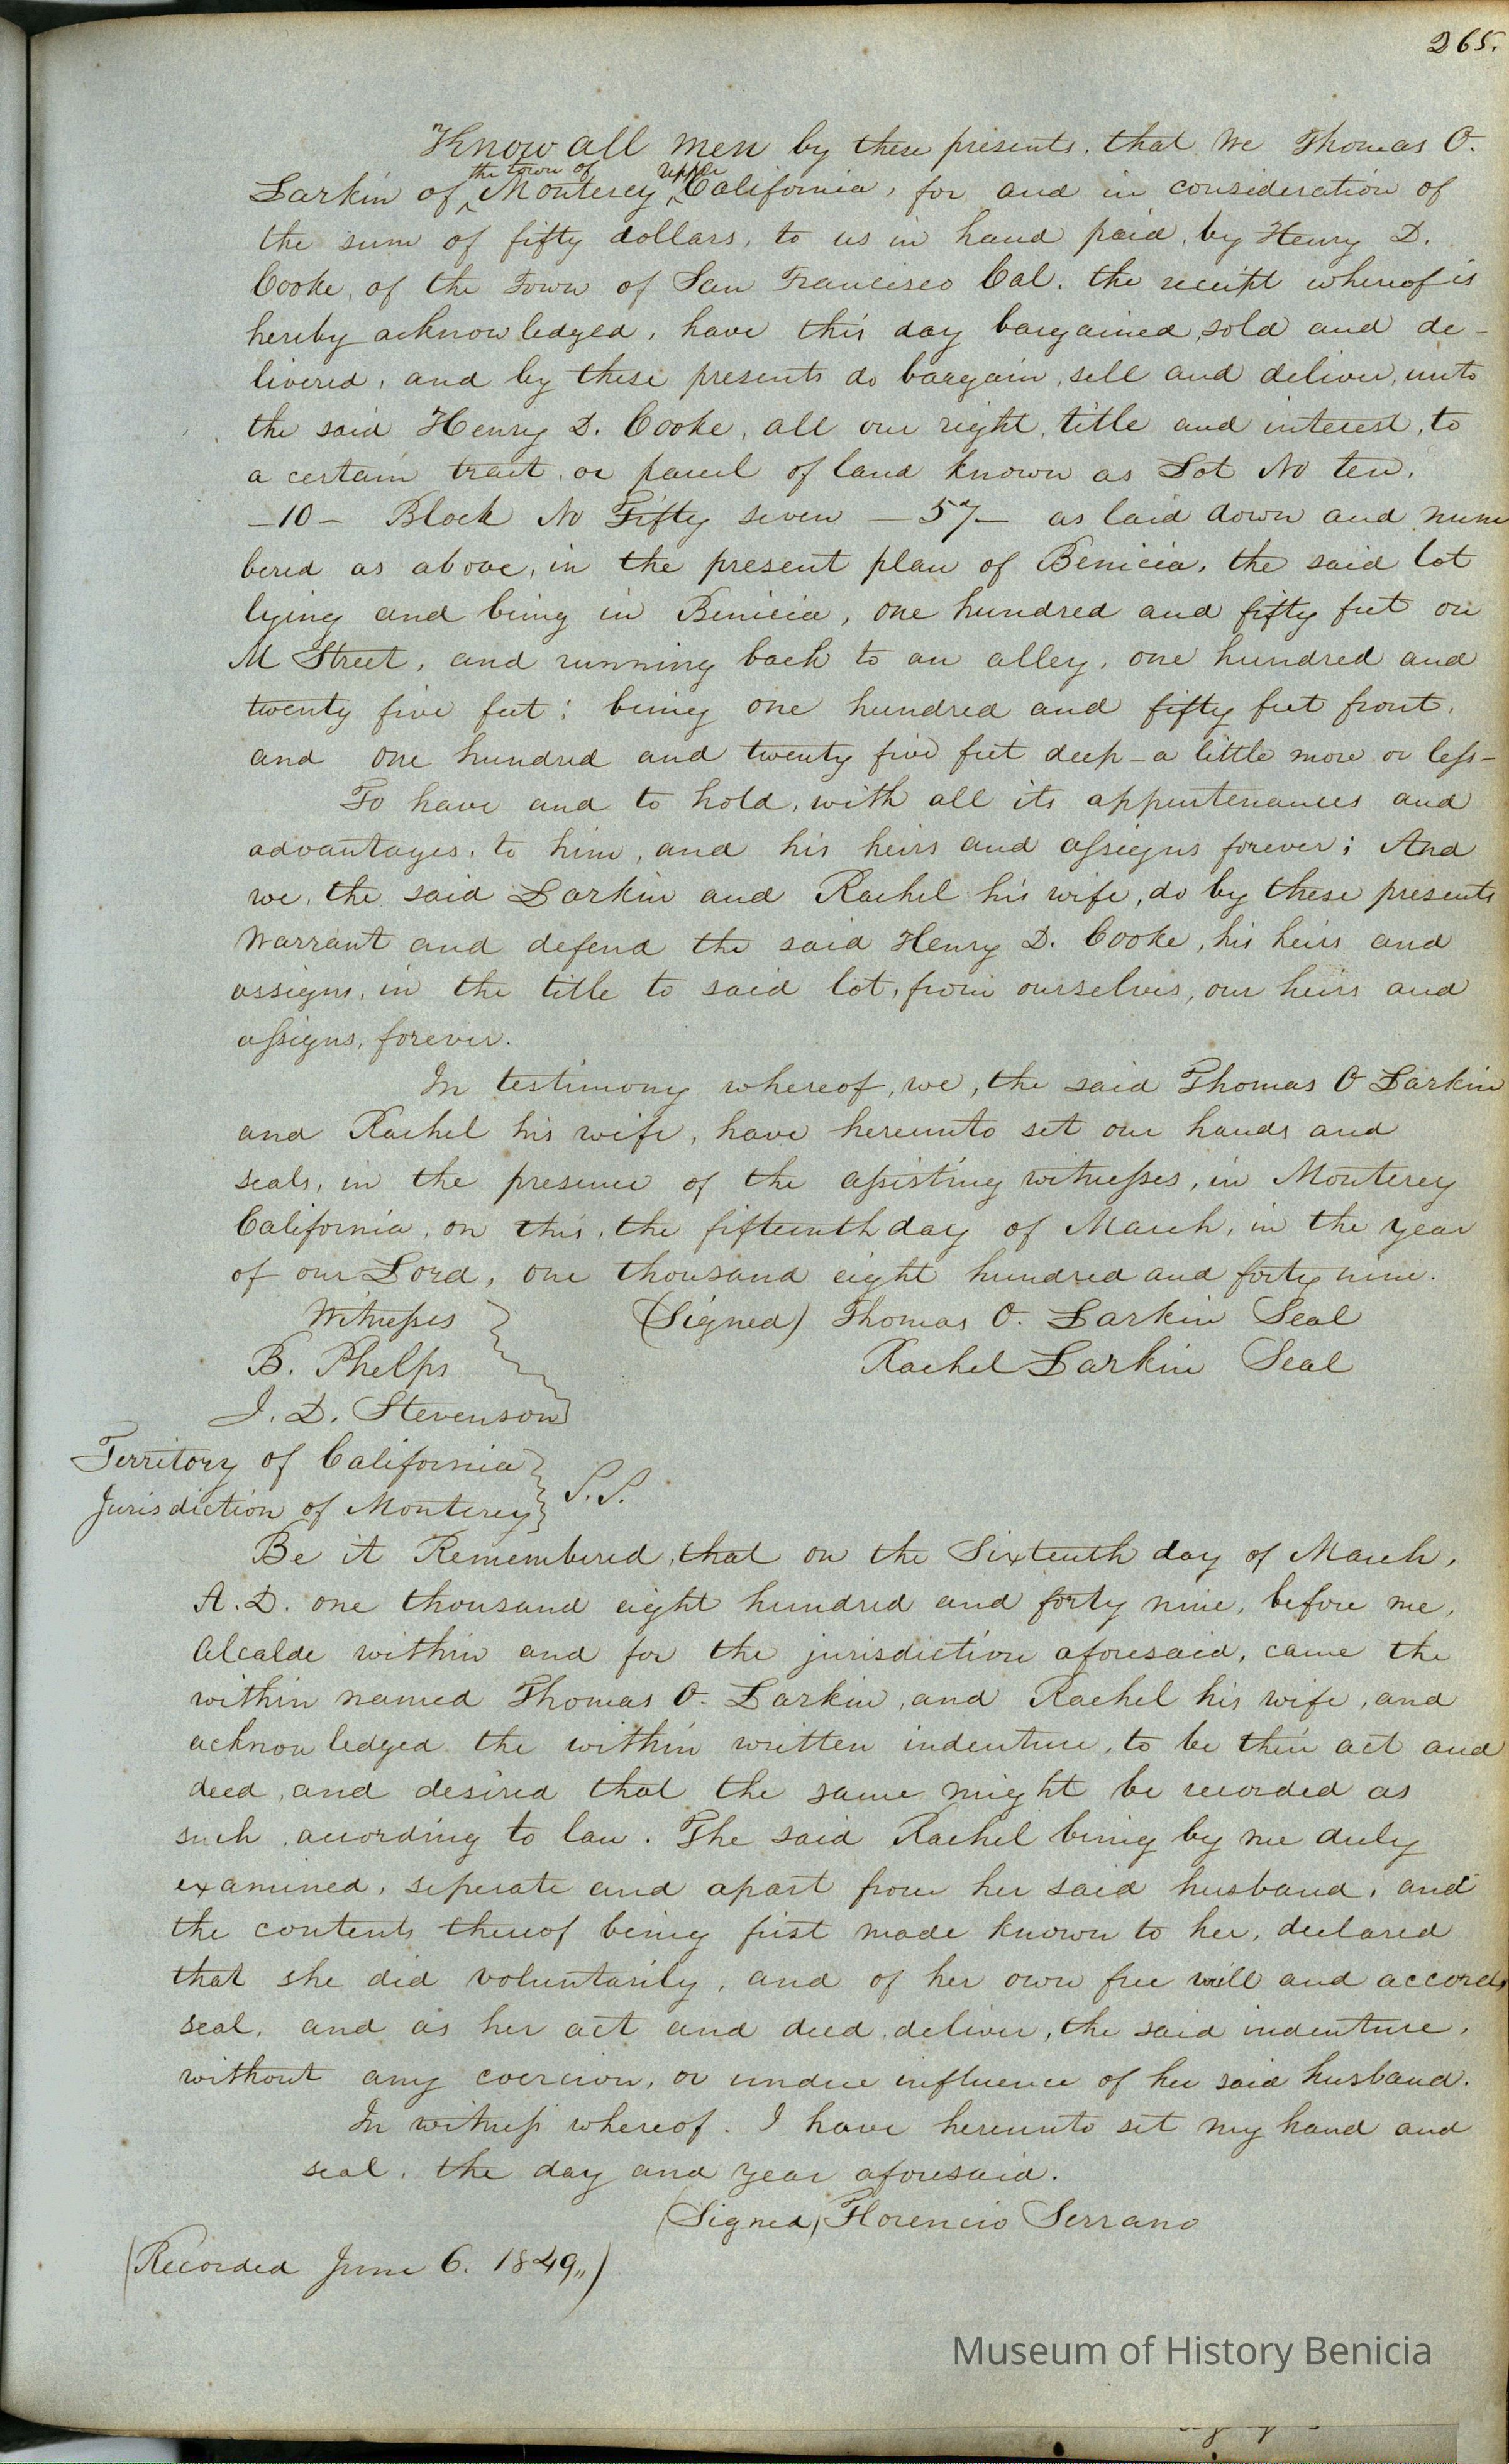 265.
Know all men by these presents, that We Thomas O.
the town of upper
Larkin of ^ Monterey ^ California, for and in consideration of
the sum of fifty dollars, to us in hand paid, by Henry D.
Cooke, of the Town of San Francisco Cal. the receipt whereof is
hereby acknowledged, have this day bargained, sold and de-
livered, and by these presents do bargain, sell and deliver, unto
the said Henry D. Cooke, all our right, title and interest, to
a certain tract, or parcel of land known as Lot No ten,
-10- Block No Fifty seven -57- as laid down and num
bered as above, in the present plan of Benicia, the said lot
lying and being in Benicia, one hundred and fifty feet on
M Street, and running back to an alley, one hundred and
twenty five feet; being one hundred and fifty feet front,
and one hundred and twenty five feet deep - a little more or less -
To have and to hold, with all its appurtenances and
advantages, to him, and his heirs and assigns forever; And
we, the said Larkin and Rachel his wife, do by these presents
Warrant and defend the said Henry D. Cooke, his heirs and
assigns, in the title to said lot, from ourselves, our heirs and
assigns, forever.
In testimony whereof, we, the said Thomas O Larkin
and Rachel his wife, have hereunto set our hands and
seals, in the presence of the assisting witnesses, in Monterey
California, on this, the fifteenth day of March, in the year
of our Lord, one thousand eight hundred and forty nine.
Witnesses (Signed) Thomas O. Larkin Seal
B. Phelps Rachel Larkin Seal
J. D. Stevenson
Territory of California
Jurisdiction of Monterey } S.S.
Be it Remembered, that on the Sixteenth day of March,
A.D. one thousand eight hundred and forty nine, before me,
Alcalde within and for the jurisdiction aforesaid, came the
within named Thomas O. Larkin, and Rachel his wife, and
acknowledged the within written indenture, to be their act and
deed, and desired that the same might be recorded as
such, according to law. The said Rachel being by me duly
examined, seperate and apart from her said husband, and
the contents thereof being first made known to her, declared
that she did voluntarily, and of her own free will and accord,
seal, and as her act and deed, deliver, the said indenture,
without any coercion, or undue influence of her said husband.
In witness whereof. I have hereunto set my hand and
seal, the day and year aforesaid.
(Signed) Florencio Serrano
(Recorded June 6. 1849")
Museum of History Benicia